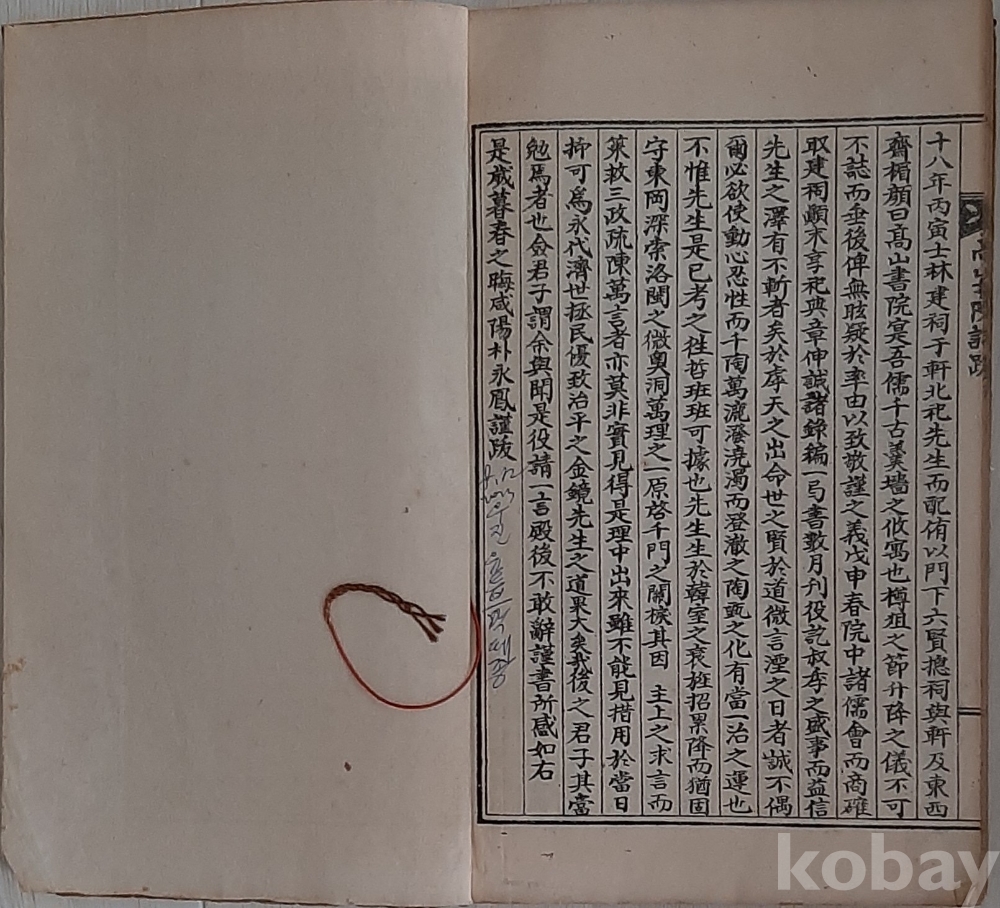 高山書院誌跋
十八年丙寅士林建祠于軒北祀先生而配侑以門下六賢摠祠與軒及東西
齊楣顔曰高山書院寔吾儒千古羹墻之攸寓也樽俎之節升降之儀不可
不誌而垂後俾無眩疑於率由以致敬謹之義戊申春院中諸儒會而商確
取建祠顚末享祀典章伸誠諸錄編一弓書數月刊役訖叔季之盛事而益信
先生之澤有不斬者矣於虖天之出命世之賢於道微言湮之日者誠不偶
爾必欲使動心忍性而千陶萬漉潑澆濁而澄澈之陶甄之化有當一治之運也
不惟先生是已考之徃哲班班可據也先生生於韓室之衰旌招累降而猶固
守東岡深索洛閩之微奧洞萬理之一原啓千門之關棙其因 主上之求言而
策救三政疏陳萬言者亦莫非實見得是理中出來雖不能見措用於當日
抑可爲永代濟世拯民優致治平之金鏡先生之道果大矣我後之君子其當
勉焉者也僉君子謂余與聞是役請一言殿後不敢辭謹書所感如右
是歲暮春之晦咸陽朴永鳳謹跋
kobay